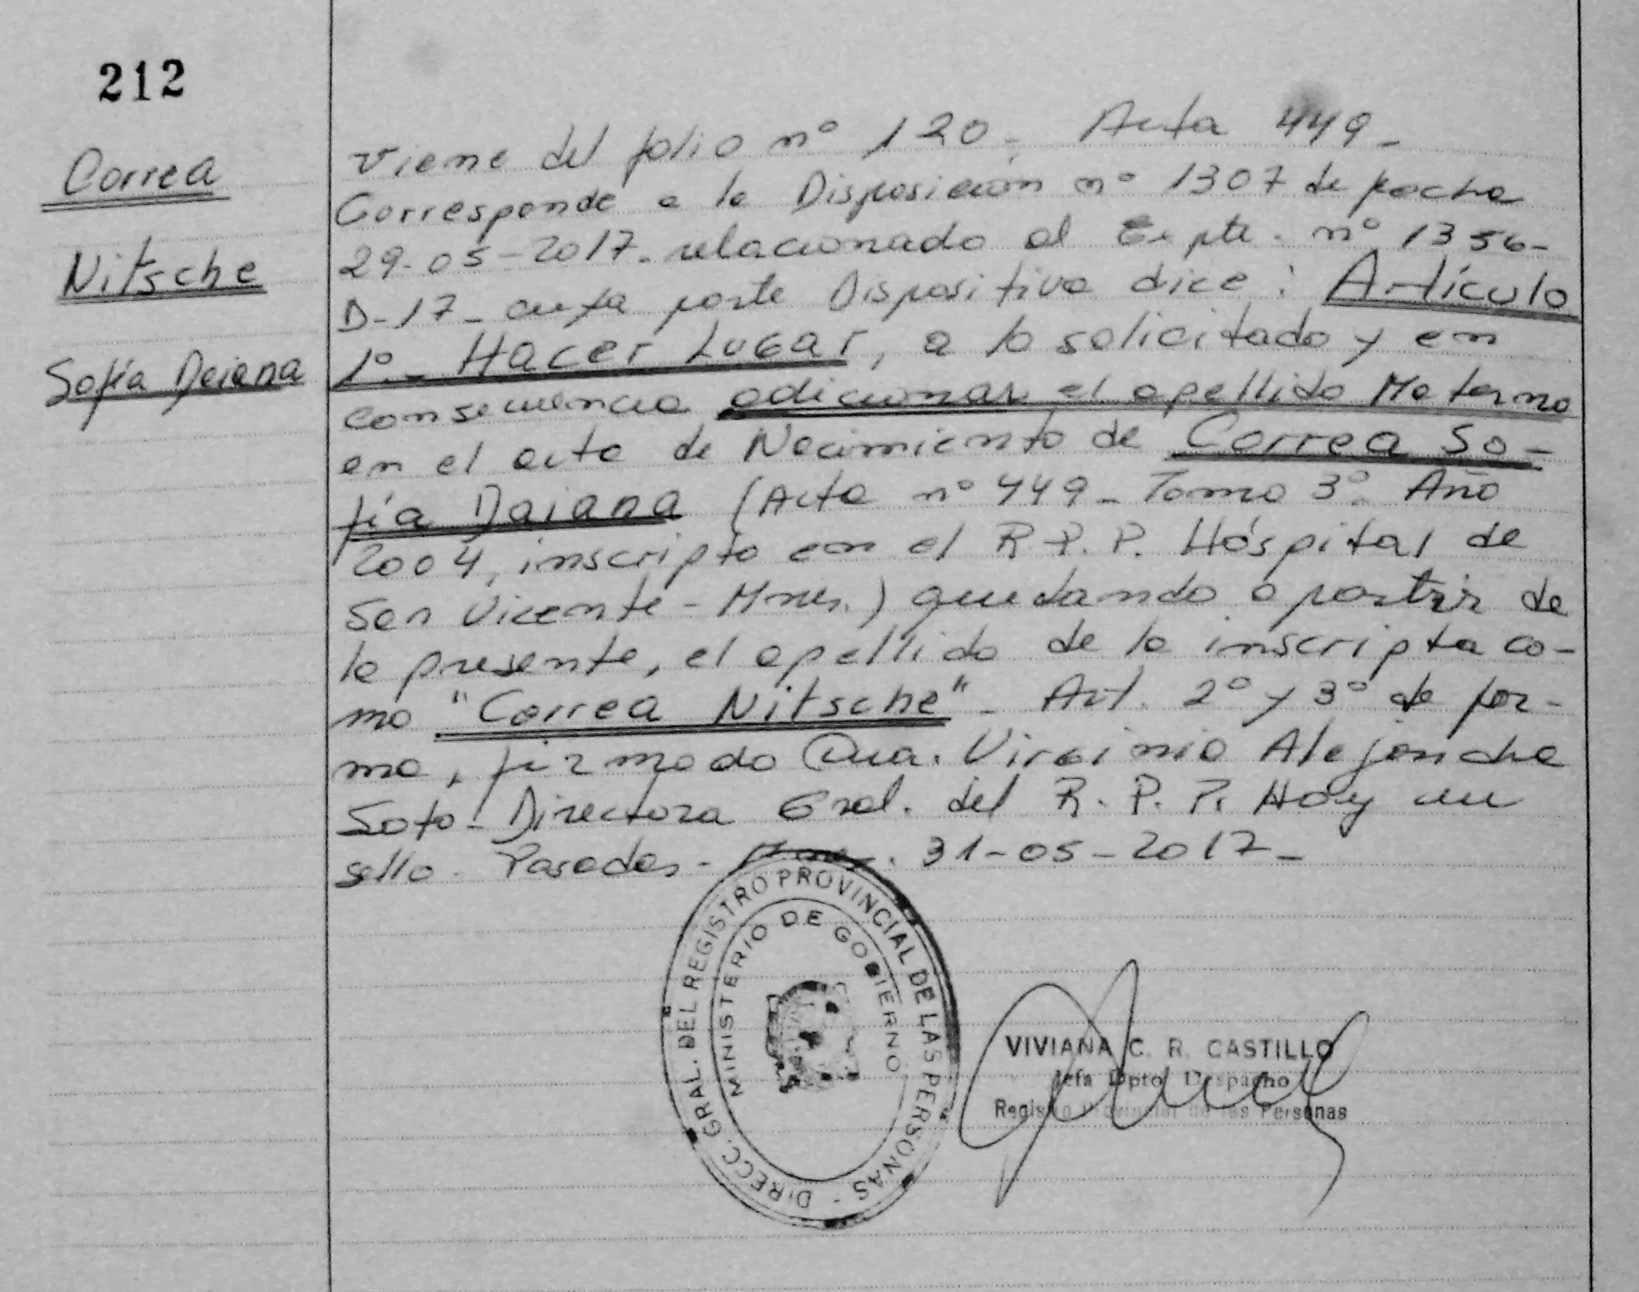 212
Correa
Nitsche
Sofía Daiana
Viene del folio nº 120. Acta 449-
Corresponde a la Disposición nº 1307 de fecha
29-05-2017- relacionado al Expte. nº 1356-
D-17- cuya parte Dispositiva dice: Artículo
1º.- Hacer Lugar, a lo solicitado y en
consecuencia adicionar el apellido Materno
en el acta de Nacimiento de Correa So-
fía Daiana (Acta nº 449- Tomo 3º- Año
2004, inscripta en el R.P.P. Hospital de
San Vicente - Mnes.) quedando a partir de
la presente, el apellido de la inscripta co-
mo "Correa Nitsche"- Art. 2º y 3º de for-
ma, firmado Dra. Virginia Alejandra
Soto- Directora Gral. del R.P.P. Hay un
sello. Posadas- Mnes. 31-05-2017-
DIRECC. GRAL. DEL REGISTRO PROVINCIAL DE LAS PERSONAS -
MINISTERIO DE GOBIERNO
VIVIANA C. R. CASTILLO
Jefa Dpto Despacho
Registro Provincial de las Personas